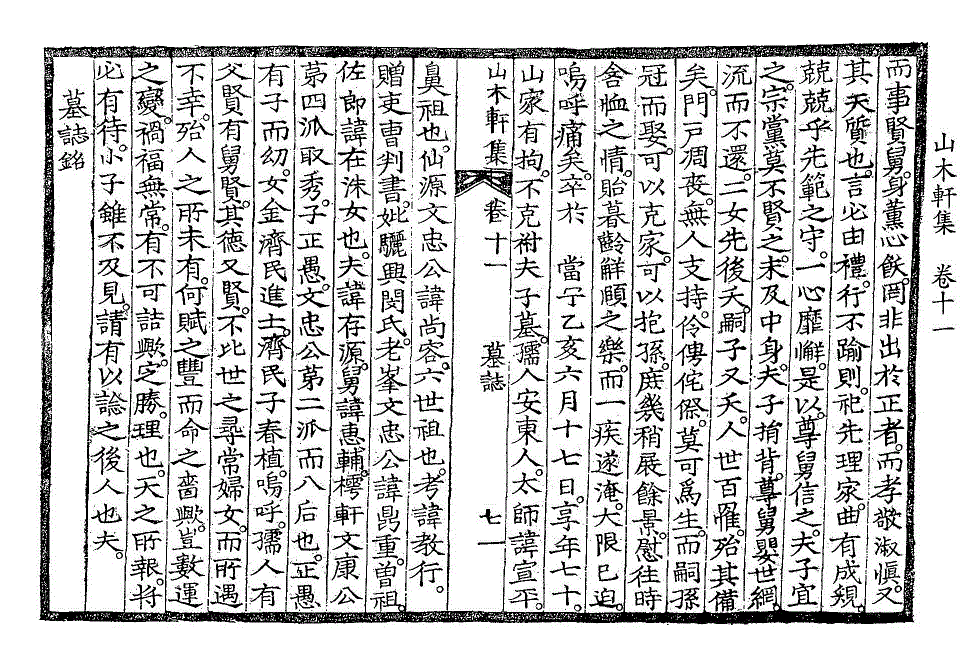 山木軒集 卷十一
而事賢舅。身薰心飫。罔非出於正者。而孝敬淑愼。又
其天質也。言必由禮。行不踰則。祀先理家。曲有成規。
兢兢乎先範之守。一心靡懈。是以尊舅信之。夫子宜
之。宗黨莫不賢之。未及中身。夫子捐背。尊舅嬰世網。
流而不還。二女先後夭。嗣子又夭。人世百罹。殆其備
矣。門戶凋喪。無人支持。伶俜侘傺。莫可爲生。而嗣孫
冠而娶。可以克家。可以抱孫。庶幾稍展餘景。慰往時
含恤之情。貽暮齡解頤之樂。而一疾遂淹。大限已迫。
嗚呼痛矣。卒於 當宁乙亥六月十七日。享年七十。
山家有拘。不克祔夫子墓。孺人安東人。太師諱宣平。
山木軒集 卷十一 墓誌 七一
鼻祖也。仙源文忠公諱尙容。六世祖也。考諱敎行。
贈吏曹判書。妣驪興閔氏。老峯文忠公諱鼎重。曾祖
佐郞諱在洙女也。夫諱存源。舅諱惠輔。樗軒文康公
第四派取秀。子正愚。文忠公第二派而八后也。正愚
有子而幼。女金濟民進士。濟民子春植。嗚呼。孺人有
父賢有舅賢。其德又賢。不比世之尋常婦女。而所遇
不幸。殆人之所未有。何賦之豐而命之嗇歟。豈數運
之變。禍福無常。有不可詰歟。定之勝。理也。天之所報。將
必有待。小子雖不及見。請有以諗之後人也夫。
墓誌銘